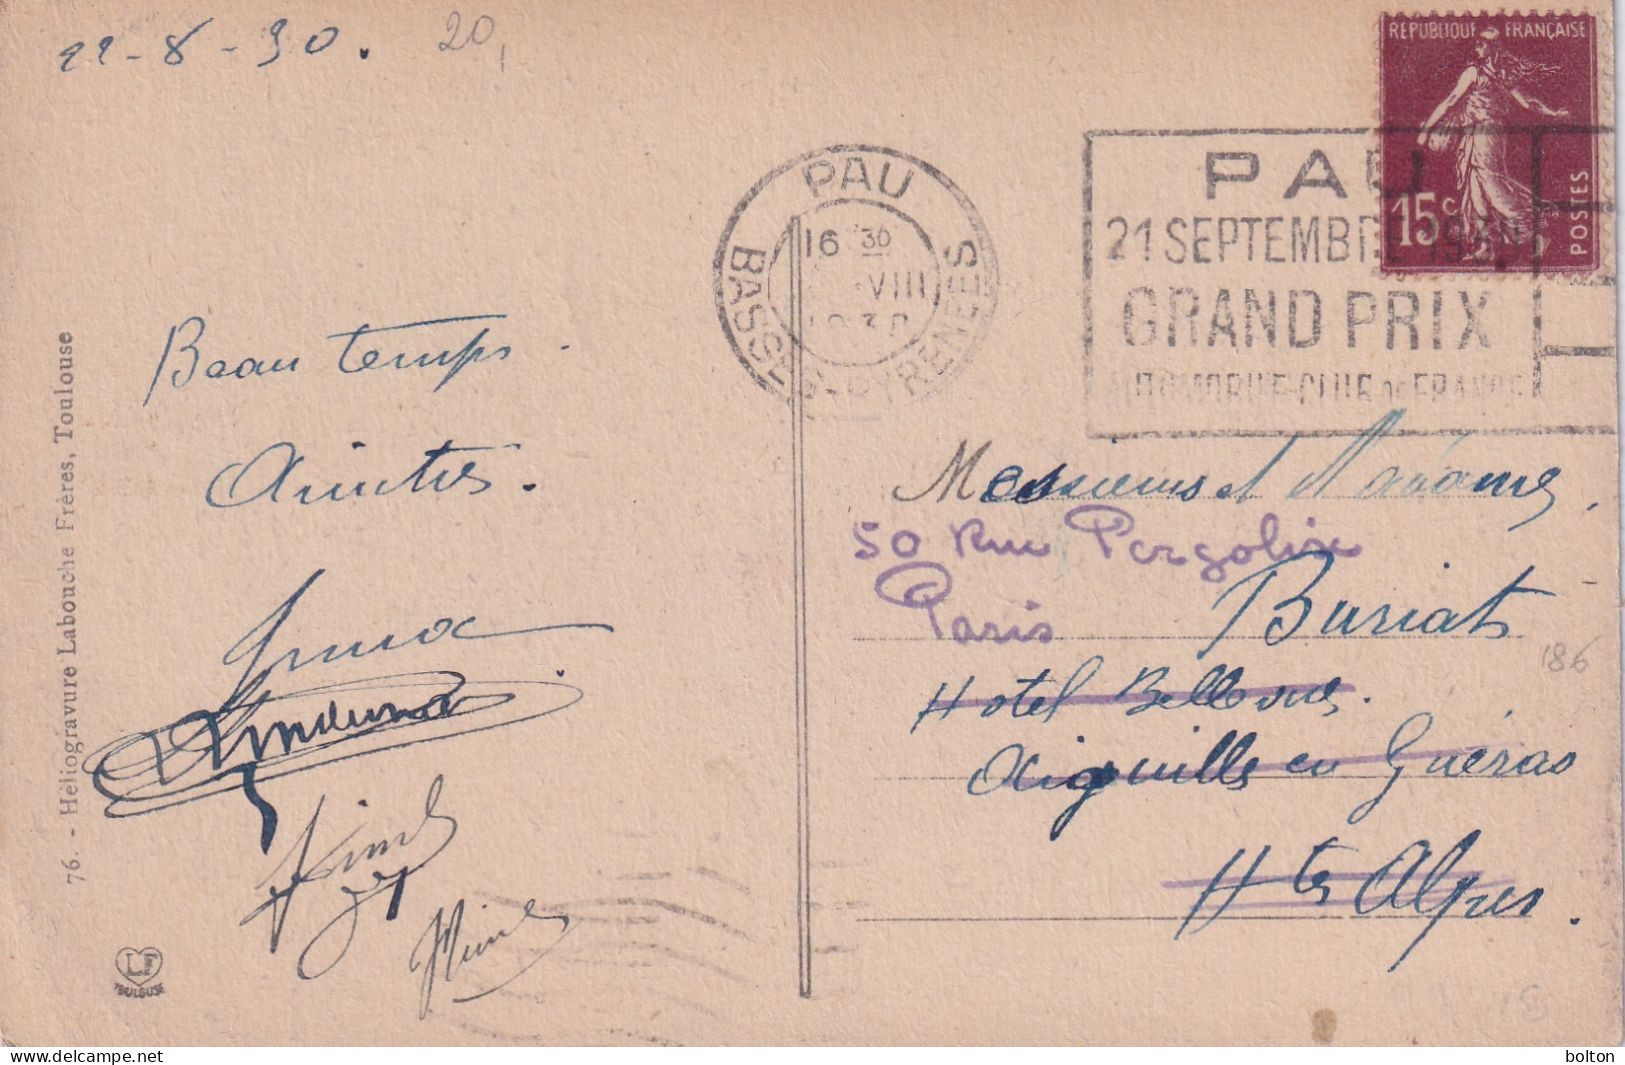 22-8-30.
20,
REPUBLIQUE FRANÇAISE
15c
POSTES
PAU
16 30
VIII
1930
BASSES-PYRENEES
PAU
21 SEPTEMBRE 1930
GRAND PRIX
AUTOMOBILE-CLUB DE FRANCE
Beau temps.
Amitiés.
76. - Héliogravure Labouche Frères, Toulouse
LF
TOULOUSE
Messieurs et Madame,
50 Rue Pergolèse
Paris
Buriat
186
Hotel Bellevue.
Aiguilles en Quéras
Htes Alpes.
18
delcampe.net
bolton